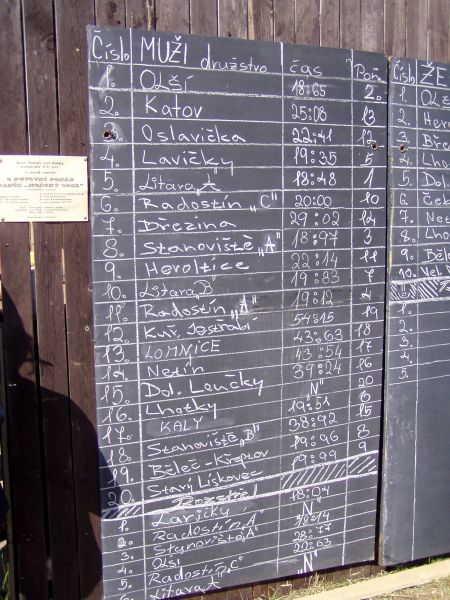 Číslo MUŽI družstvo čas Poř.
1. OLŠÍ 18:65 2.
2. Katov 25:08 13
3. Oslavička 22:41 12
4. Lavičky 19:35 5
5. Litava „A" 18:48 1
6. Radostín „C" 20:00 10
7. Březina 29:02 14
8. Stanoviště „A" 18:97 3
9. Heroltice 22:14 11
10. Litava „B" 19:83 7
11. Radostín „A" 19:12 4
12. Kuř. Jestřabí 19
13. LOMNICE 43:63 18
14. Netín 43:54 17
15. Dol. Loučky 39:24 16
16. Lhotky „N" 20
17. KALY 19:51 6
18. Stanoviště „B" 38:92 15
19. Běleč-Křeptov 19:96 8
20. Starý Lískovec 19:99 9
Rozstřel
1. Lavičky
2. Radostín „A" N
3. Stanoviště „A" 18:14
4. Olší 28:77
5. Radostín „C" 20:63
6. Litava „A" „N"
Číslo ŽE
1. Olš
2. Hero
3. Bře
4. Lho
5. Dol.
6. Ček
7. Net
8. Lho
9. Běle
10. Vel.
1.
2.
3.
4.
5.